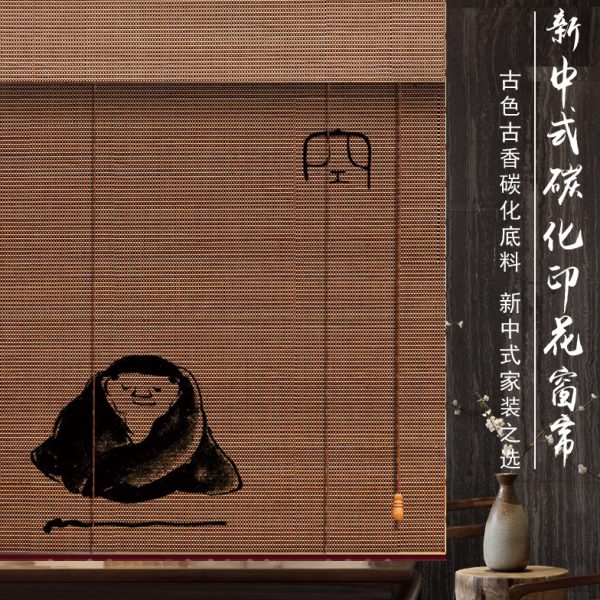 新中式碳化印花窗帘
古色古香碳化底料 新中式家装之选
空